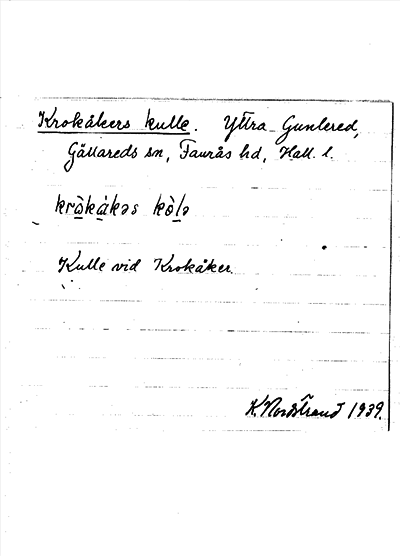 Krokåkers kulle. Yttra Gunlered,
Gällareds sn, Faurås hd, Hall. l.
krò̱kà̱kəs kò̱lə
Kulle vid Krokåker.
K. Nordstrand 1939.